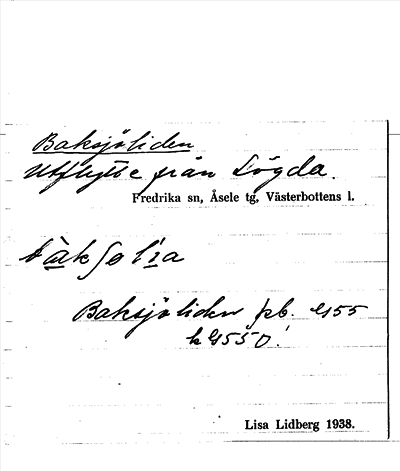 Baksjöliden
Utflytte från Lögda.
Fredrika sn, Åsele tg, Västerbottens l.
Baksjöliden
Lisa Lidberg 1938.